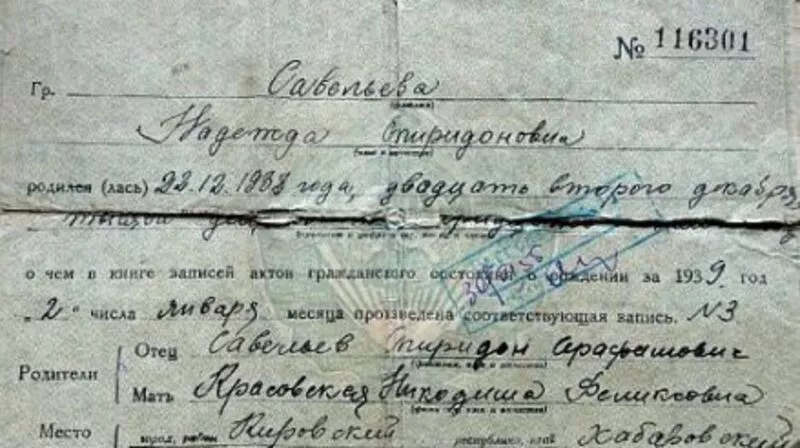 № 116301
Гр. Савельева
(фамилия)
Надежда Спиридоновна
(имя и отчество)
родился (лась) 22.12.1938 года, двадцать второго декабря
о чем в книге записей актов гражданского состояния о рождении за 1939 год
„2“ числа января месяца произведена соответствующая запись. N3
Родители
Отец Савельев Спиридон
(фамилия, имя и отчество)
Мать Красовская
(фамилия, имя и отчество)
Место Кировский Хабаровский
город, район республика, край